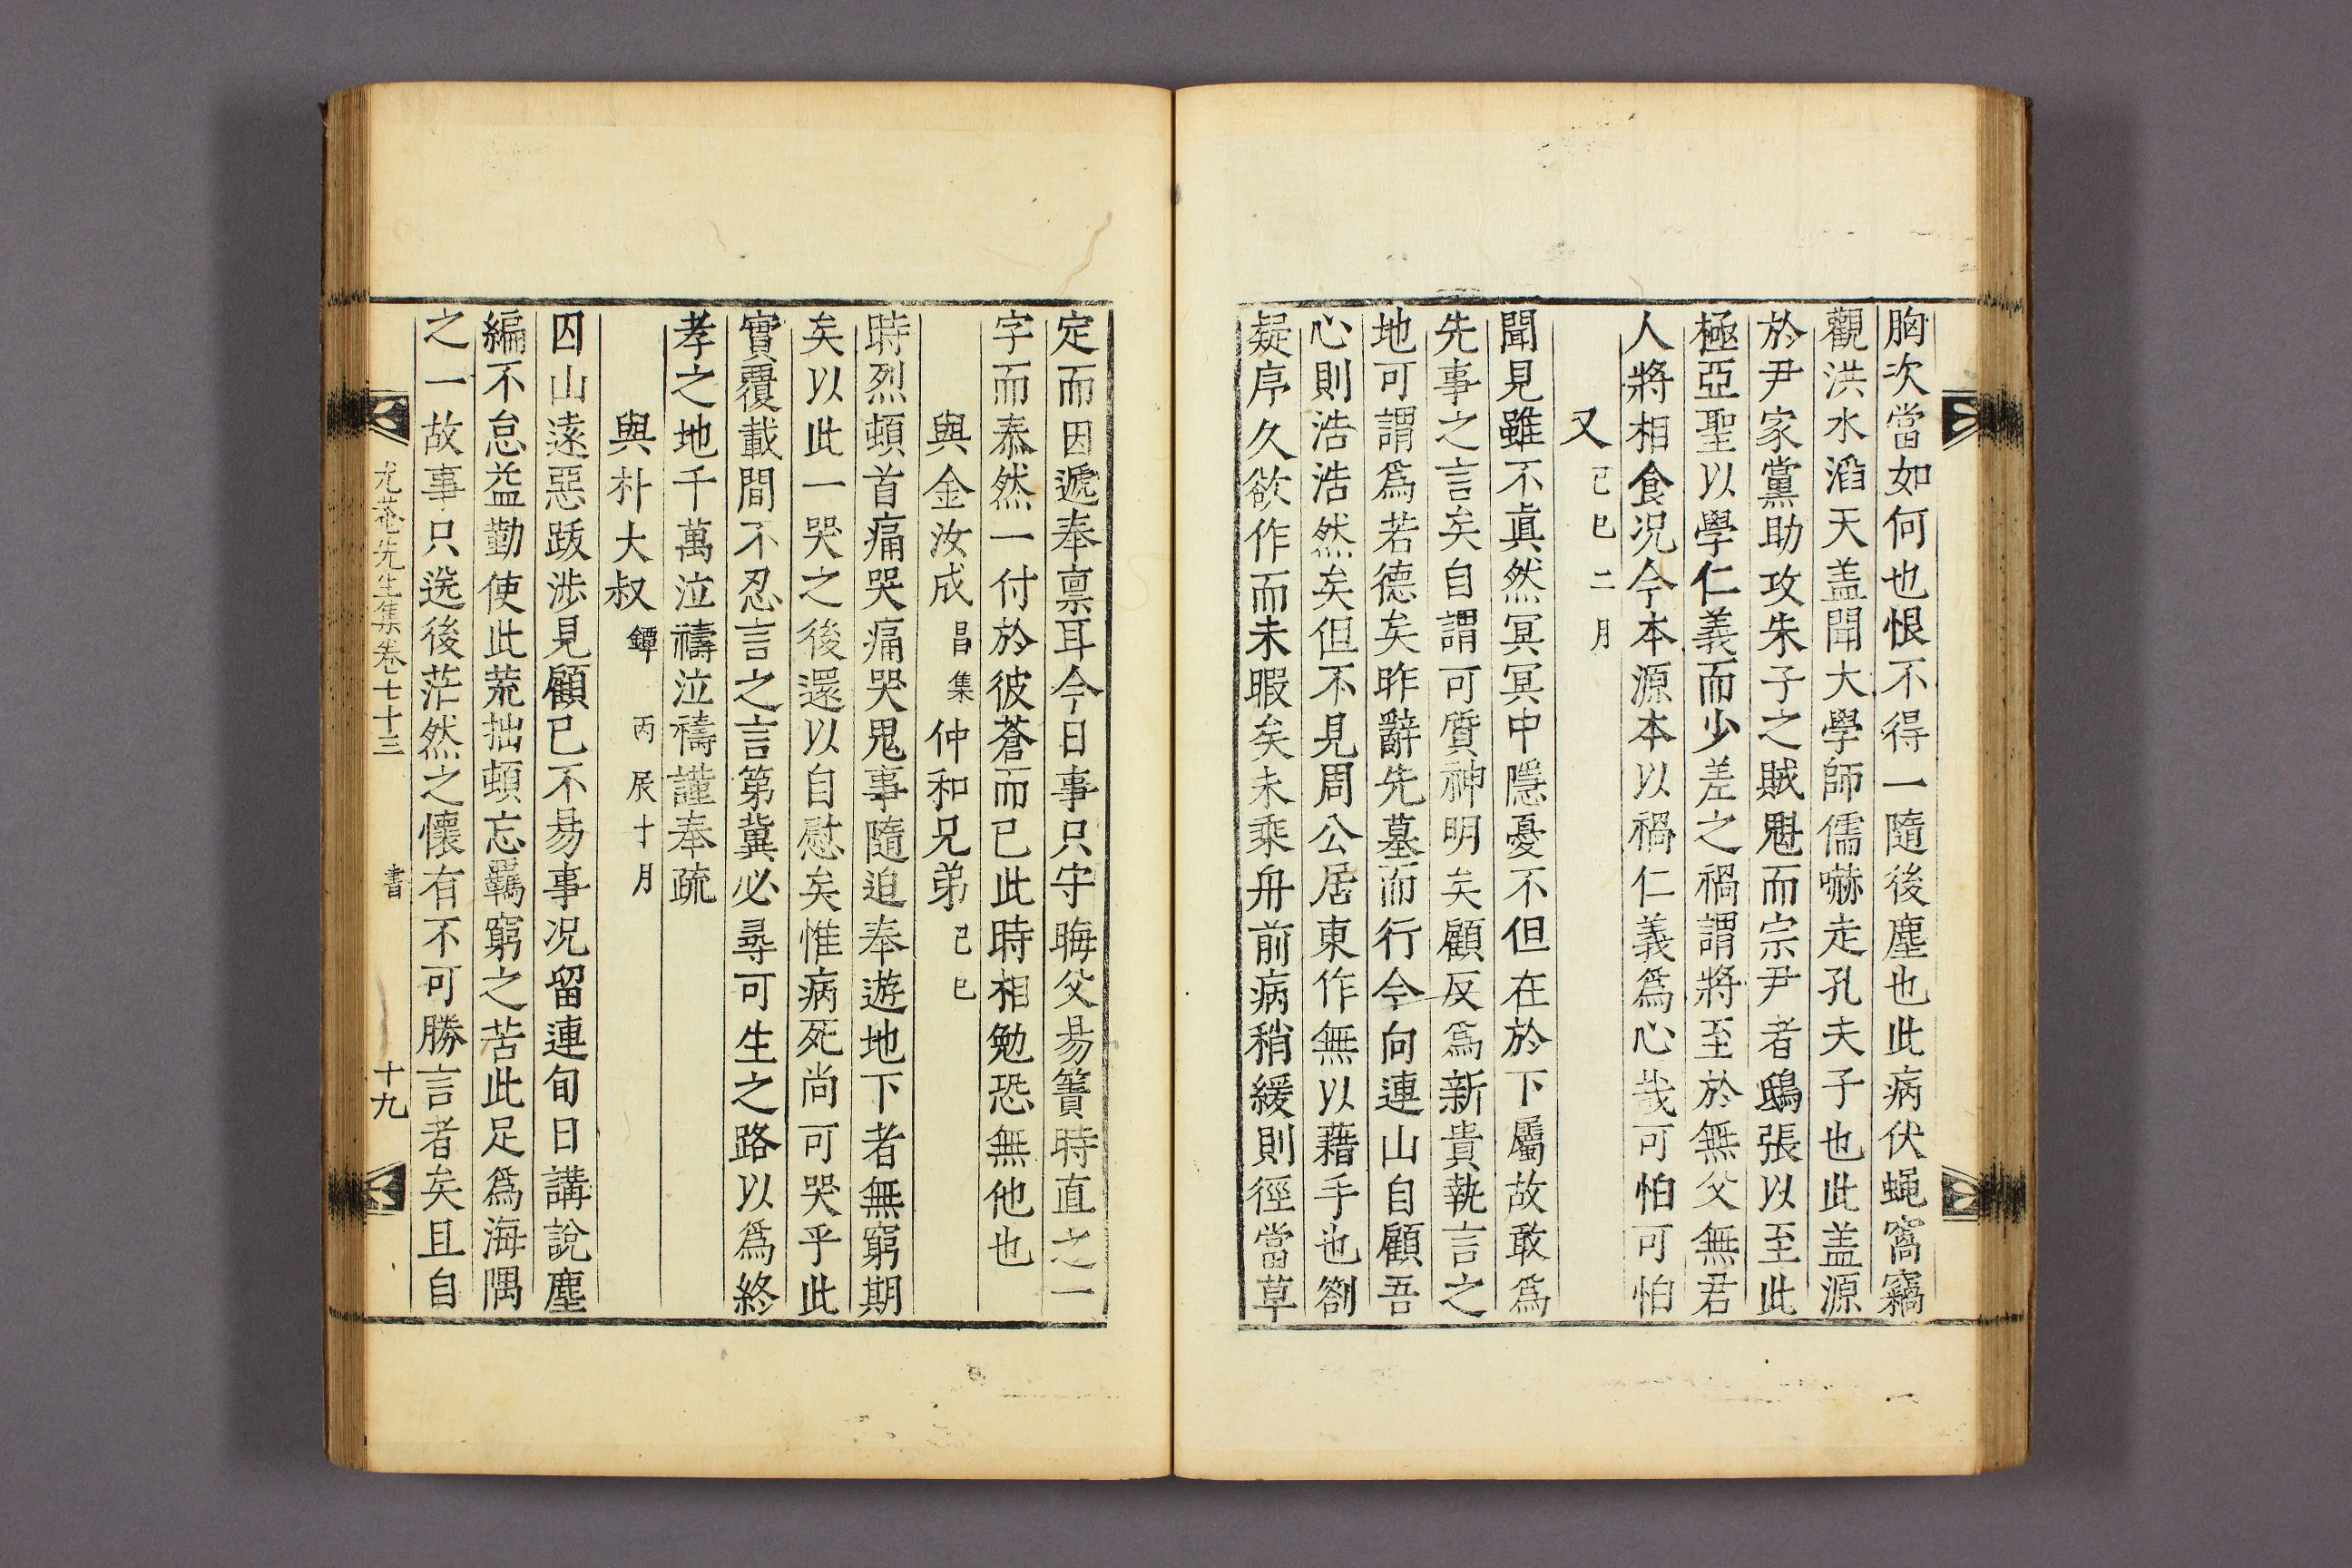 胸次當如何也恨不得一隨後塵也此病伏蝿窩竊
觀洪水滔天盖聞大學師儒嚇走孔夫子也此盖源
於尹家黨助攻朱子之賊魁而宗尹者鴟張以至此
極亞聖以學仁義而少差之禍謂將至於無父無君
人將相食况今本源本以禍仁義爲心哉可怕可怕
又 己巳二月
聞見雖不眞然冥冥中隱憂不但在於下屬故敢爲
先事之言矣自謂可質神明矣顧反爲新貴執言之
地可謂爲若德矣昨辭先墓而行今向連山自顧吾
心則浩浩然矣但不見周公居東作無以藉手也劄
疑序久欲作而未暇矣未乘舟前病稍緩則徑當草
定而因遞奉禀耳今日事只守晦父易簀時直之一
字而泰然一付於彼蒼而已此時相勉恐無他也
與金汝成 昌集 仲和兄弟 己巳
時烈頓首痛哭痛哭鬼事隨迫奉遊地下者無窮期
矣以此一哭之後還以自慰矣惟病死尚可哭乎此
實覆載間不忍言之言第冀必尋可生之路以爲終
孝之地千萬泣禱泣禱謹奉疏
與朴大叔 鐔 丙辰十月
囚山遠惡跋涉見顧已不易事况留連旬日講說塵
編不怠益勤使此荒拙頓忘羈窮之苦此足爲海隅
之一故事只送後茫然之懷有不可勝言者矣且自
尤菴先生集卷七十三 書 十九